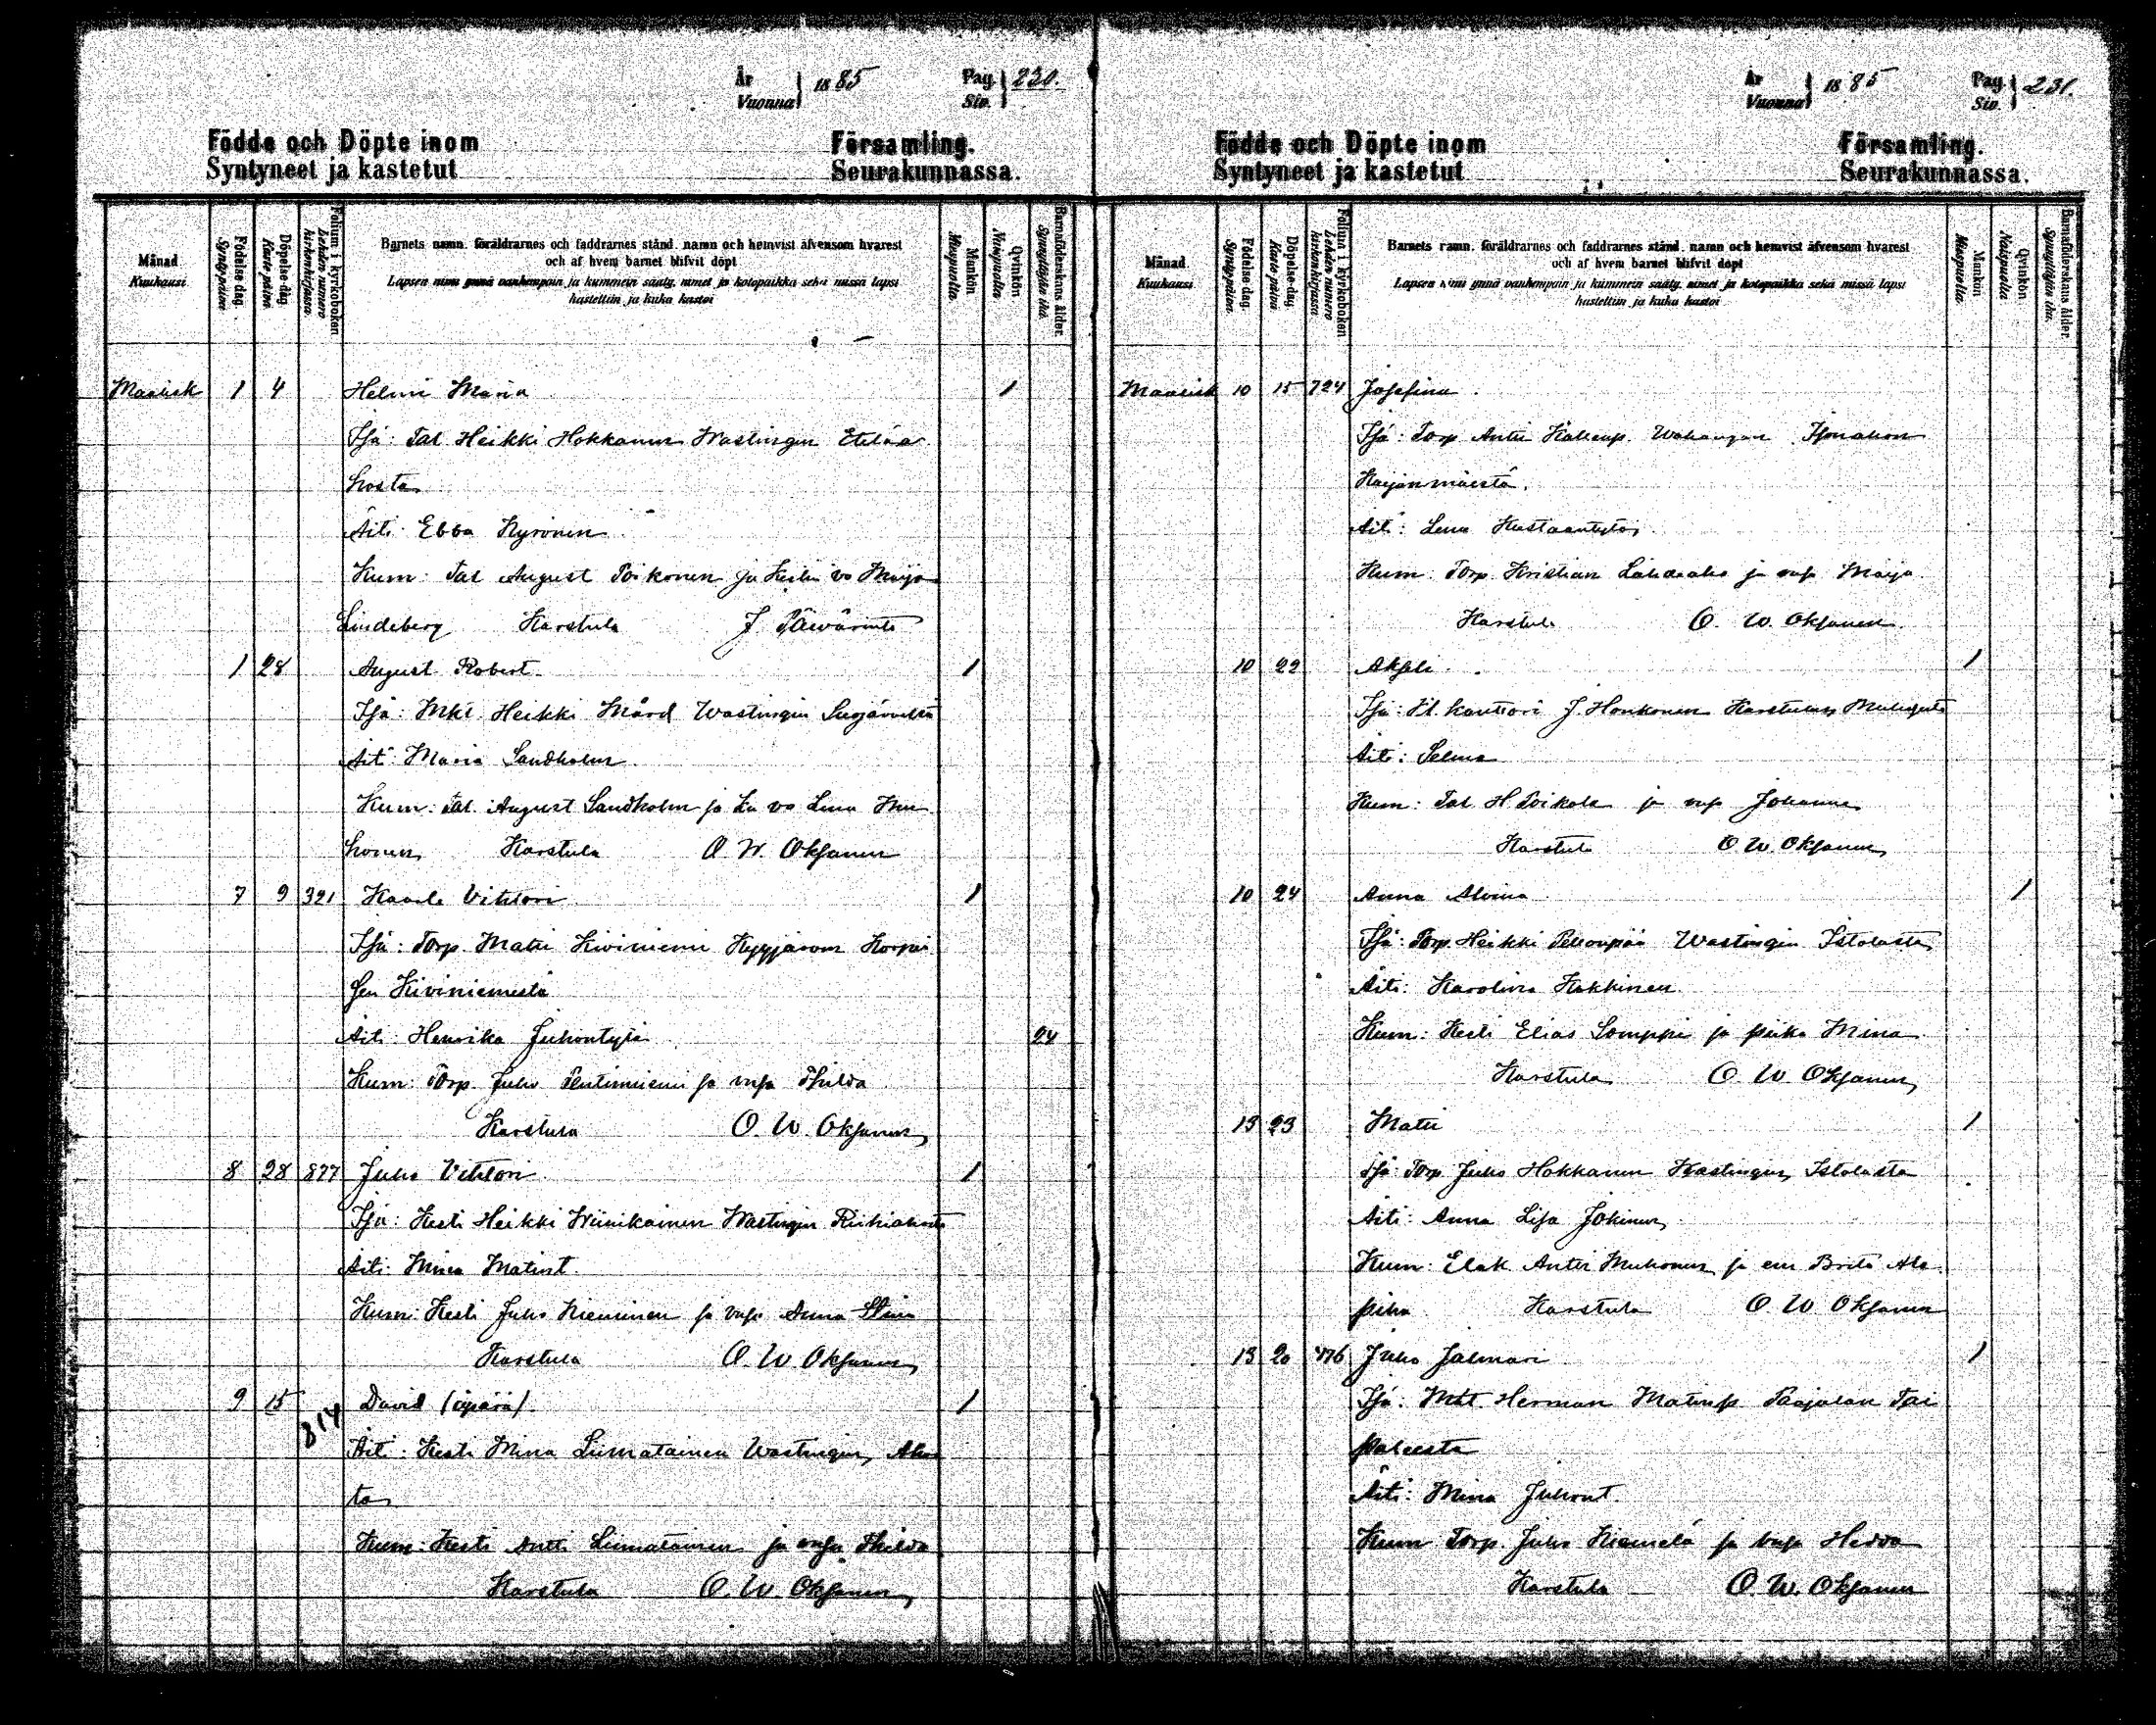 År
Vuonna
1885
Pag.
Siv.
230.
Födde och Döpte inom Församling.
Syntyneet ja kastetut Seurakunnassa.
Månad
Kuukausi
Födelse dag.
Syntypäivä
Döpelse-dag
Kaste-päivä
Folium i kyrkoboken
Lehden numero kirkonkirjassa
Barnets namn, föräldrarnes och faddrarnes stånd, namn och hemvist äfvensom hvarest
och af hvem barnet blifvit döpt
Lapsen nimi ynnä vanhempain ja kummein sääty, nimet ja kotopaikka sekä missä lapsi
kastettiin ja kuka kastoi
Mankön
Miespuolta
Qvinkön
Naispuolta
Barnaföderskans ålder.
Synnyttäjän ikä.
Maalisk 1 4 Helmi Maria 1
Isä: Tal Heikki Hokkanen Wastingin Eteläa
hosta
Äiti: Ebba Kyrönen
Kum: Tal August Poikonen ja Maija
Lindeberg Karstula J. Päivärinta
1 28 August Robert 1
Isä: Mki Heikki Mård Wastingin
Äiti: Maria Sandholm
Kum: Tal. August Sandholm ja Lena Mu
honen Karstula O. W. Oksanen
7 9 321 Kaarle Vihtori 1
Isä: Torp. Matti Kiviniemi Kyyjärven Korpi
sen Kiviniemestä
Äiti: Henrika Juhontytä 24
Kum: Torp. Juho Penttiniemi ja vmsa Thilda
Karstula O. W. Oksanen
8 28 877 Juho Vihtori 1
Isä: Kesti Heikki Wiinikainen Wastingin Riihiahosta
Äiti: Mina Matint.
Kum: Kesti Juho Nieminen ja vmsa Anna Stina
Karstula O. W. Oksanen
9 15 814 David (äpärä) 1
Äiti: Kesti Mina Liimatainen Wastingin, Ahos
ta
Kum: Kesti Antti Liimatainen ja vmsa Thilda
Karstula O. W. Oksanen
År
Vuonna
1885
Pag.
Siv.
231.
Födde och Döpte inom Församling.
Syntyneet ja kastetut Seurakunnassa.
Månad
Kuukausi
Födelse dag
Syntypäivä
Döpelse-dag
Kaste päivä
Folium i kyrkoboken
Lehden numero kirkonkirjassa
Barnets namn, föräldrarnes och faddrarnes stånd, namn och hemvist äfvensom hvarest
och af hvem barnet blifvit döpt
Lapsen nimi ynnä vanhempain ja kummein sääty, nimet ja kotopaikka sekä missä lapsi
kastettiin ja kuka kastoi
Mankön
Miespuolta
Qvinkön
Naispuolta
Barnaföderskans ålder.
Synnyttäjän ikä.
Maalisk 10 15 724 Josefina
Isä: Torp Antti Wahangan Isonahon
Kaijanmäestä.
Äiti: Lena Kustaantytär
Kum: Torp. Kristian Lähdeaho ja vmsa Maija
Karstula O. W. Oksanen
10 22 Akseli 1
Isä: Vt. kanttori J. Honkonen Karstulan
Äiti: Selma
Kum: Tal H. Poikola ja vmsa Johanna
Karstula O. W. Oksanen
10 24 Anna Alvina 1
Isä: Torp. Heikki Pellonpää Wastingin Istolasta
Äiti: Karolina Hakkinen
Kum: Kesti Elias Somppi ja piika Mina
Karstula O. W. Oksanen
13 23 Matti 1
Isä: Torp Juho Hokkanen Wastingin, Istolasta
Äiti: Anna Lisa Jokinen
Kum: Elak. Antti Muhonen ja em Brita Ala
piha Karstula O. W. Oksanen
13 20 776 Juho Jalmari 1
Isä: Mkt. Herman Matinp. Paajalan Tai
paleesta
Äiti: Mina Juhont.
Kum Torp. Juho Niemelä ja vmsa Hedda
Karstula O. W. Oksanen